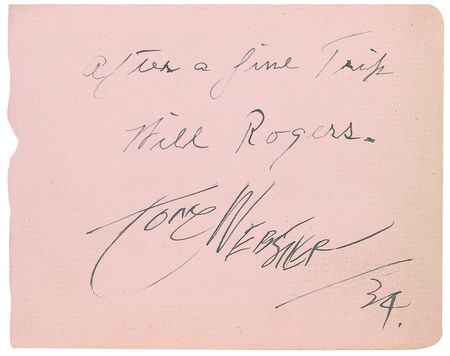 After a fine Trip
Will Rogers.
Tony Webster
/34.